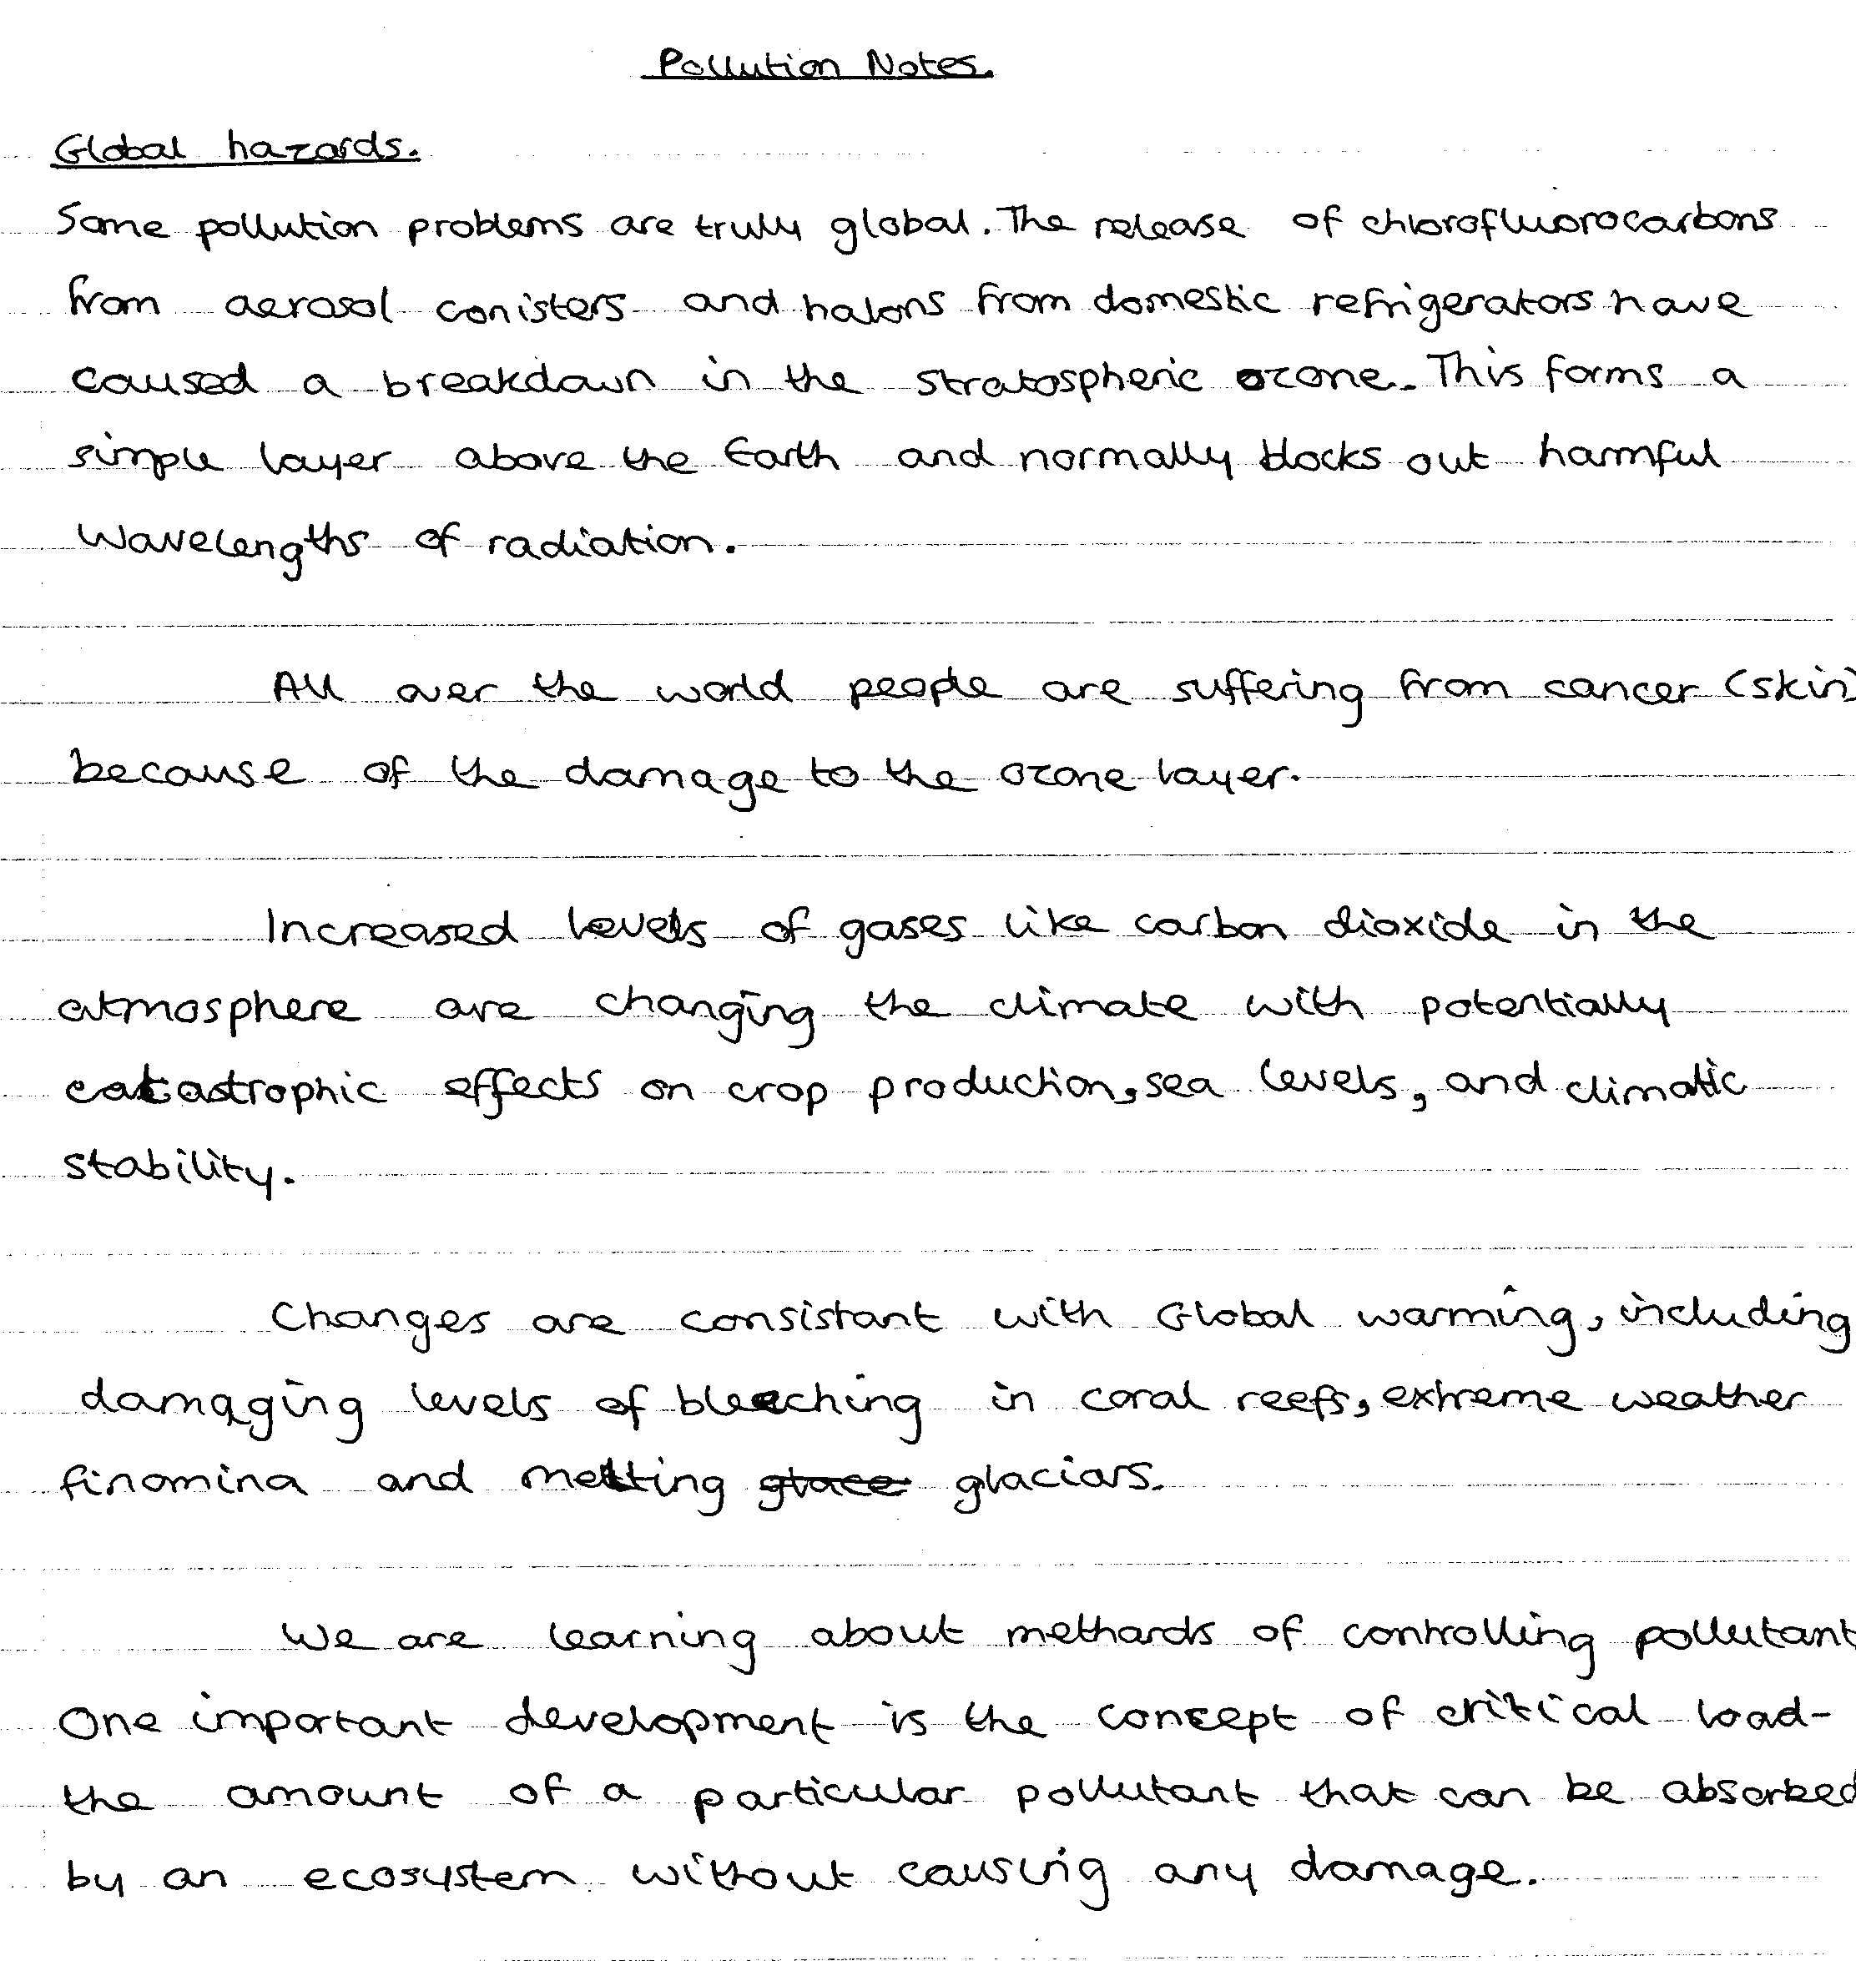 Pollution Notes.
Global hazards.
Some pollution problems are truly global. The release of chlorofluorocarbons
from aerosol conisters and halons from domestic refrigerators have
caused a breakdown in the stratospheric ozone. This forms a
simple layer above the Earth and normally blocks out harmful
wavelengths of radiation.
All over the world people are suffering from cancer (skin)
because of the damage to the ozone layer.
Increased levels of gases like carbon dioxide in the
atmosphere are changing the climate with potentially
catastrophic effects on crop production, sea levels, and climatic
stability.
Changes are consistant with Global warming, including
damaging levels of bleaching in coral reefs, extreme weather
finomina and melting glace glaciars.
We are learning about methards of controlling pollutant
One important development is the concept of critical load-
the amount of a particular pollutant that can be absorbed
by an ecosystem without causing any damage.